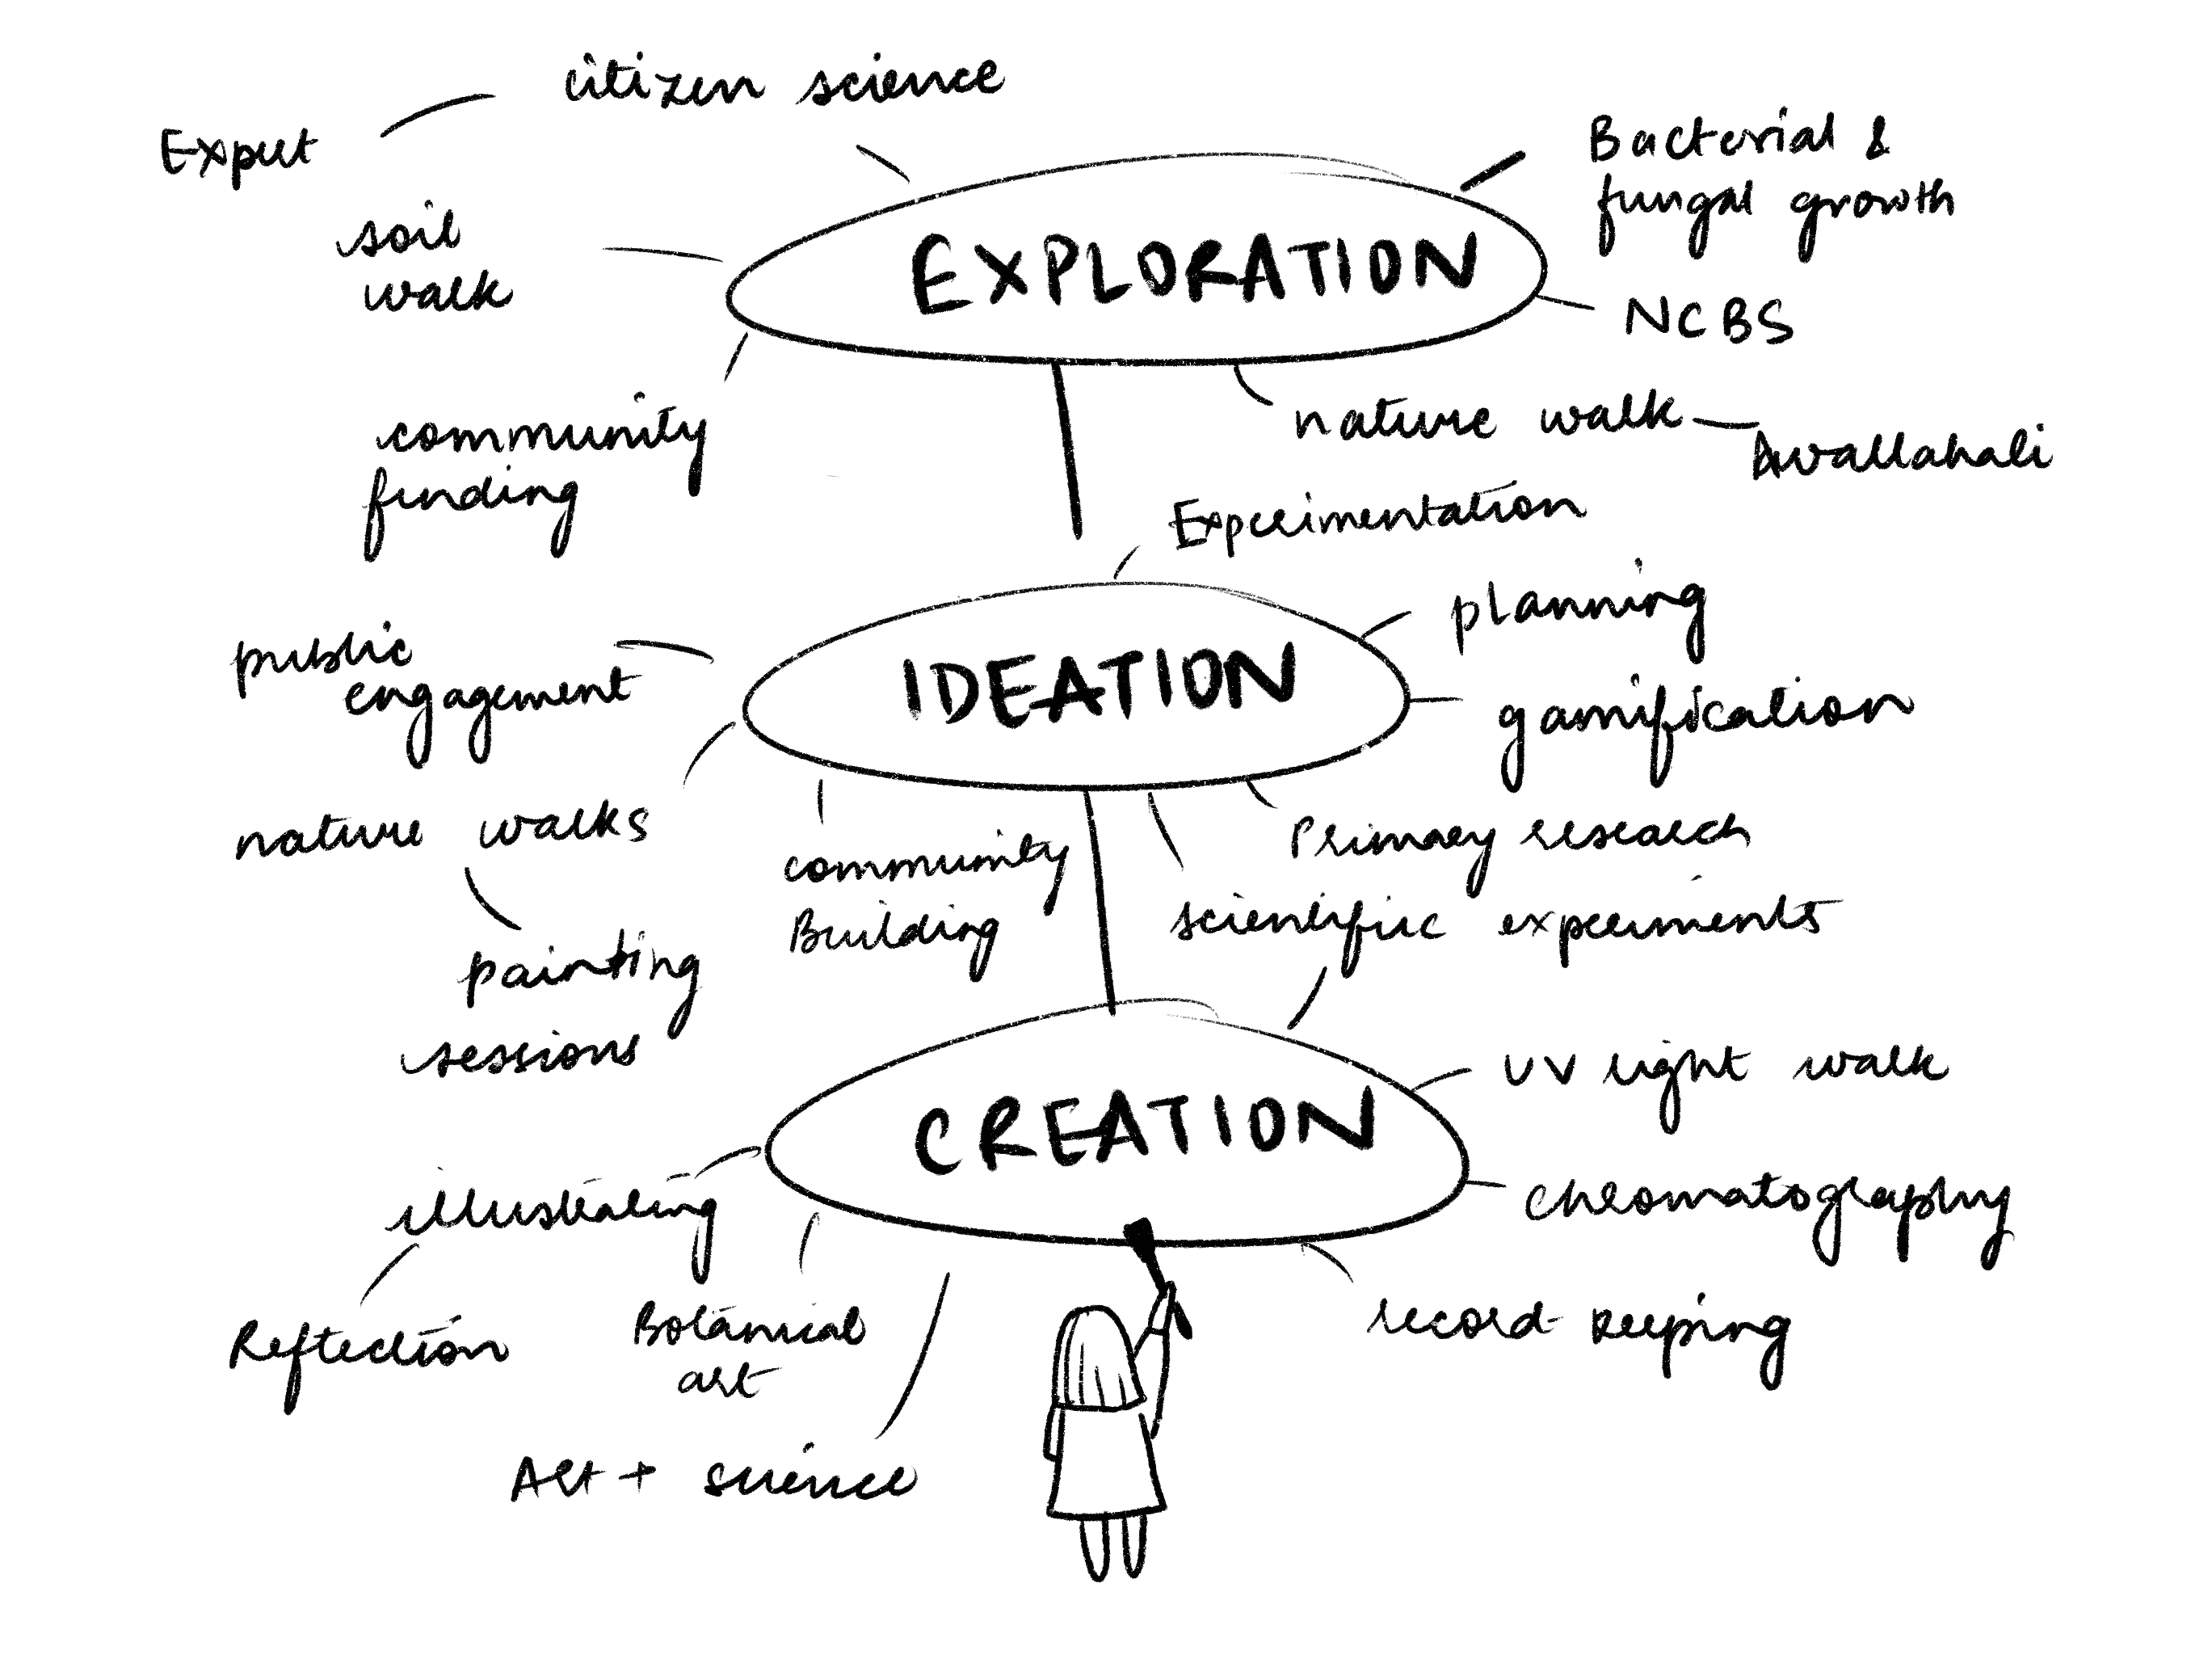 citizen science
Expert
Bacterial &
fungal growth
soil
walk
EXPLORATION
NCBS
community
funding
nature walk
Avallahali
Experimentation
planning
public
engagement
IDEATION
gamification
nature walks
community
Building
Primary research
scientific experiments
painting
sessions
UV light walk
CREATION
illustrating
chromatography
Reflection
Botanical
art
record keeping
Art + science